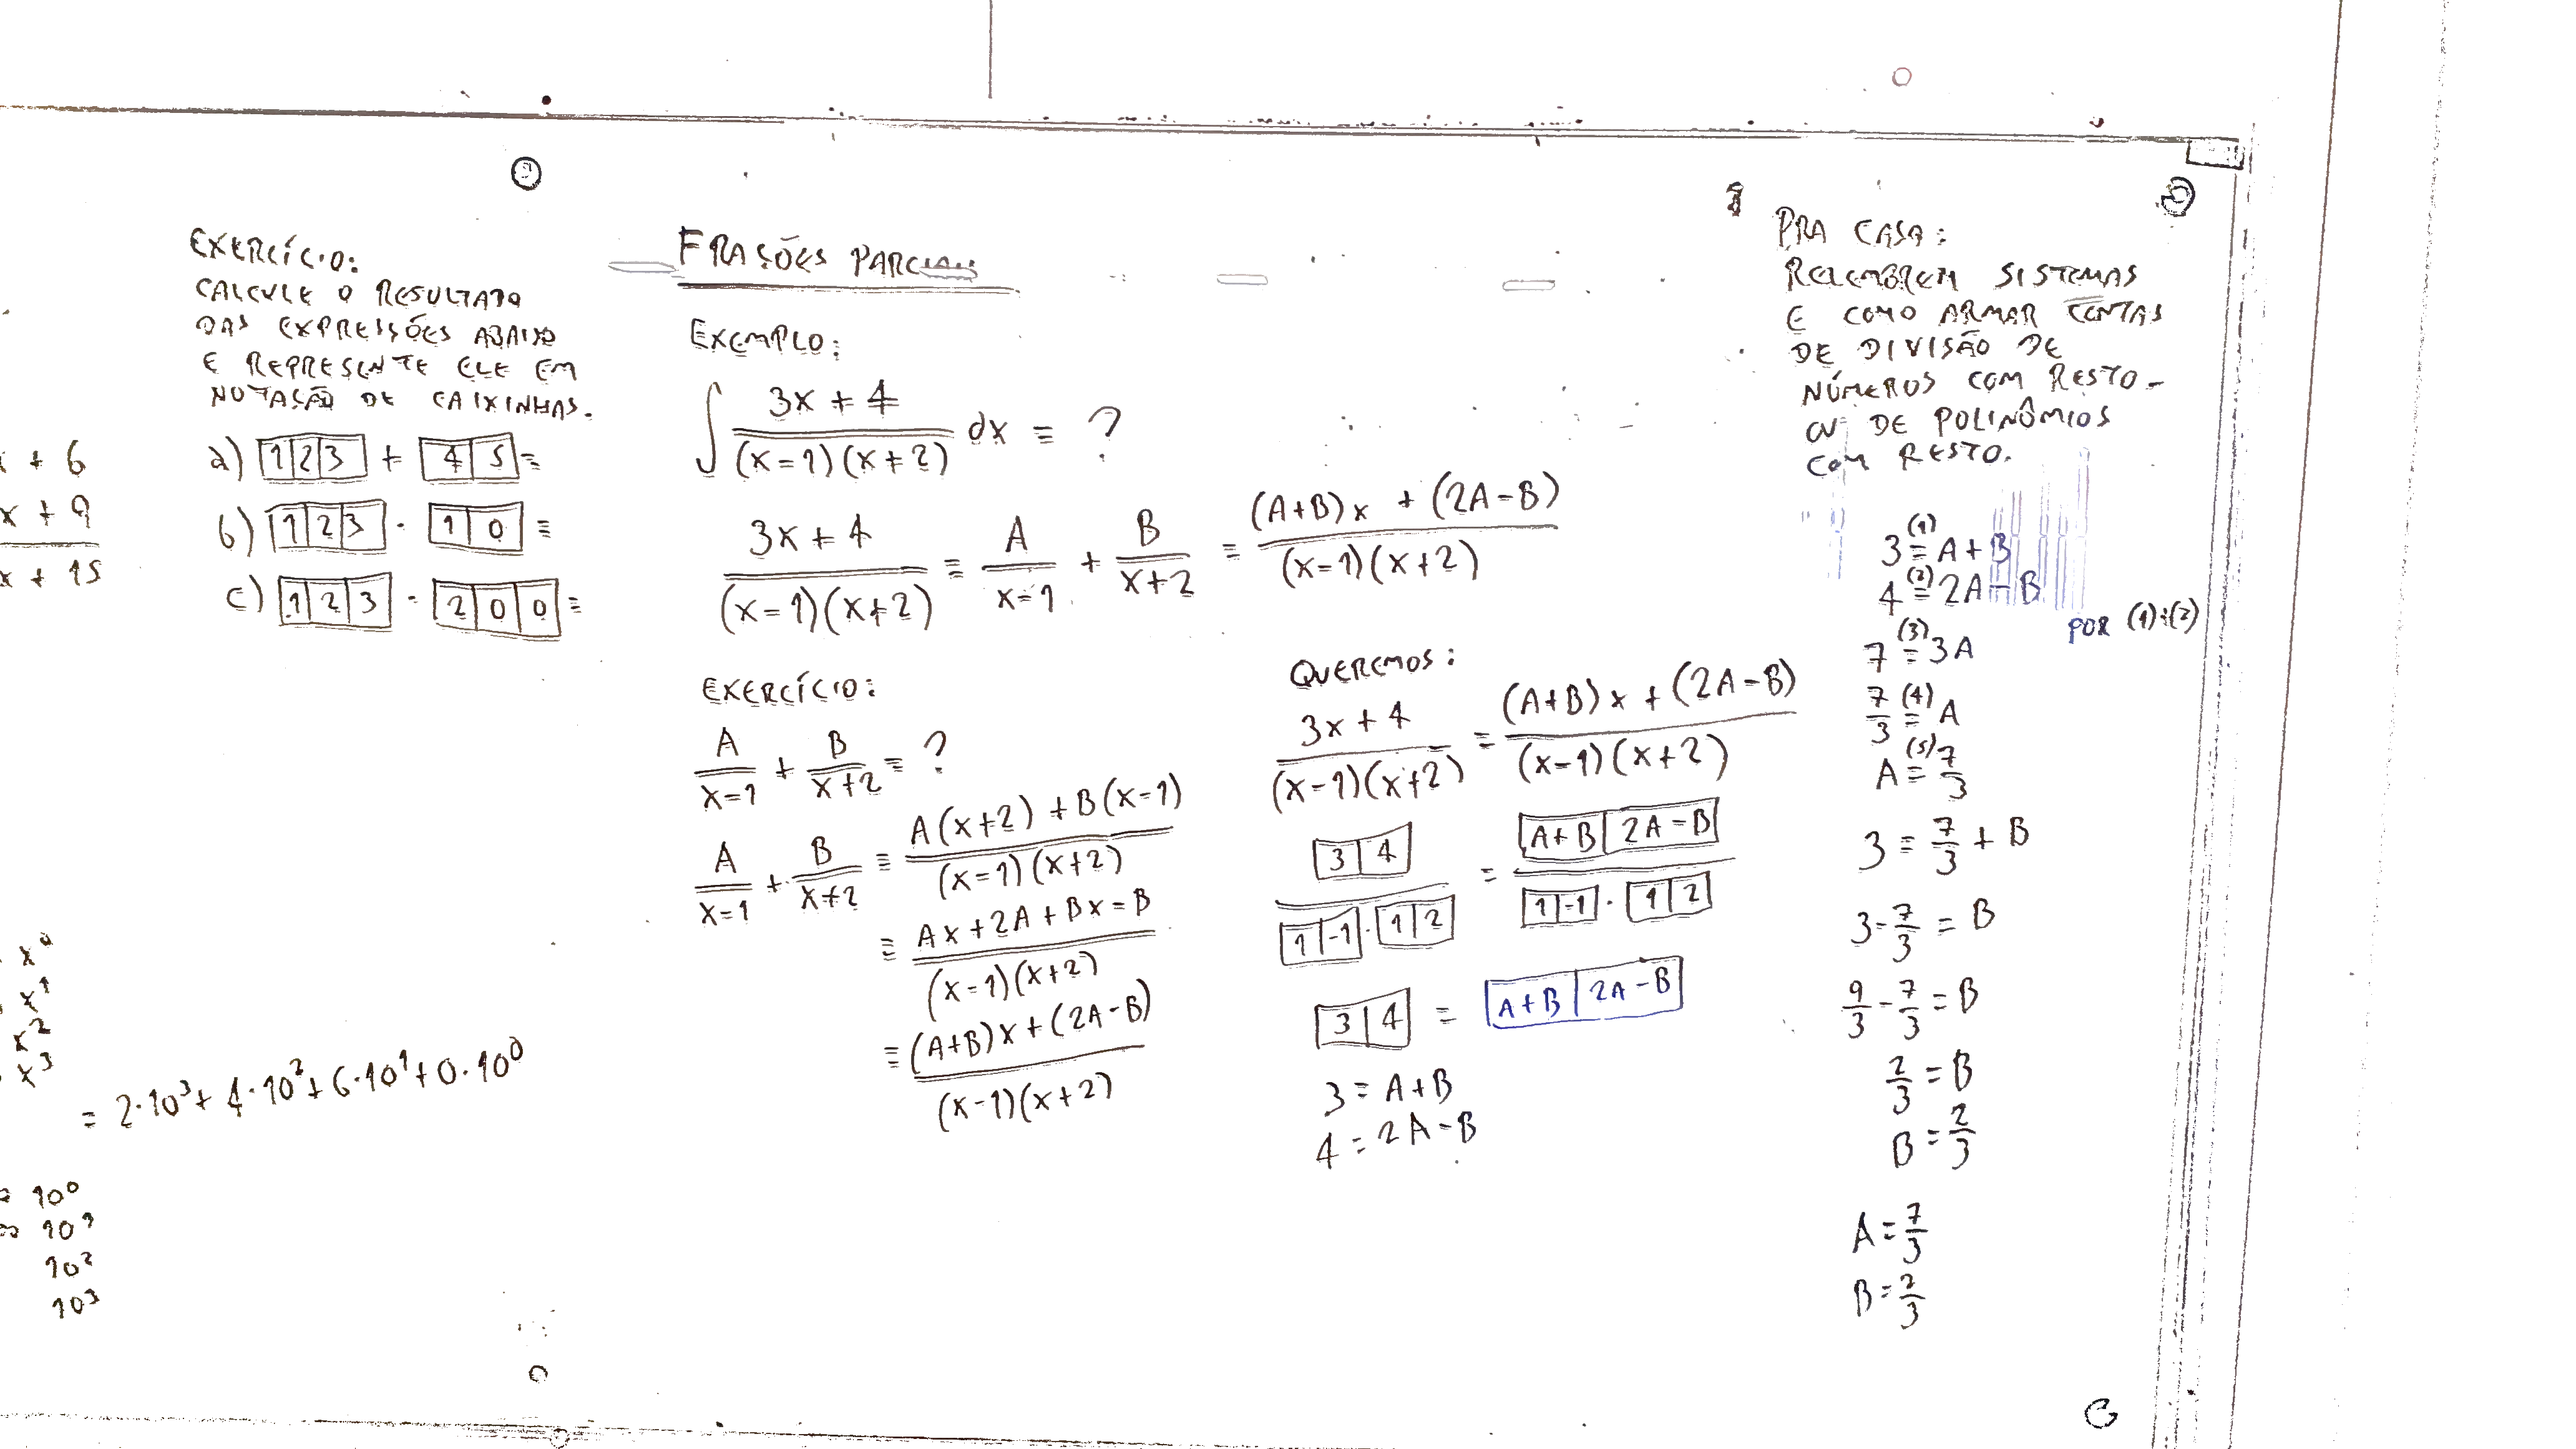 x + 6
x + 9
x + 15
x⁰
x¹
x²
x³
= 2·10³ + 4·10² + 6·10¹ + 0·10⁰
10⁰
10¹
10²
10³
EXERCÍCIO:
CALCULE O RESULTADO
DAS EXPRESSÕES ABAIXO
E REPRESENTE ELE EM
NOTAÇÃO DE CAIXINHAS.
a) [1|2|3] + [4|5] =
b) [1|2|3] · [1|0] =
c) [1|2|3] · [2|0|0] =
FRAÇÕES PARCIAIS
EXEMPLO:
∫ (3x + 4)/((x-1)(x+2)) dx = ?
(3x + 4)/((x-1)(x+2)) = A/(x-1) + B/(x+2) = ((A+B)x + (2A-B))/((x-1)(x+2))
EXERCÍCIO:
A/(x-1) + B/(x+2) = ?
A/(x-1) + B/(x+2) = (A(x+2) + B(x-1))/((x-1)(x+2))
= (Ax + 2A + Bx - B)/((x-1)(x+2))
= ((A+B)x + (2A-B))/((x-1)(x+2))
QUEREMOS:
(3x + 4)/((x-1)(x+2)) = ((A+B)x + (2A-B))/((x-1)(x+2))
[3|4]/([1|-1]·[1|2]) = [A+B|2A-B]/([1|-1]·[1|2])
[3|4] = [A+B|2A-B]
3 = A+B
4 = 2A-B
PRA CASA:
RELEMBREM SISTEMAS
E COMO ARMAR CONTAS
DE DIVISÃO DE
NÚMEROS COM RESTO
OU DE POLINÔMIOS
COM RESTO.
3 =(1) A+B
4 =(2) 2A-B
7 =(3) 3A POR (1)+(2)
7/3 =(4) A
A =(5) 7/3
3 = 7/3 + B
3 - 7/3 = B
9/3 - 7/3 = B
2/3 = B
B = 2/3
A = 7/3
B = 2/3